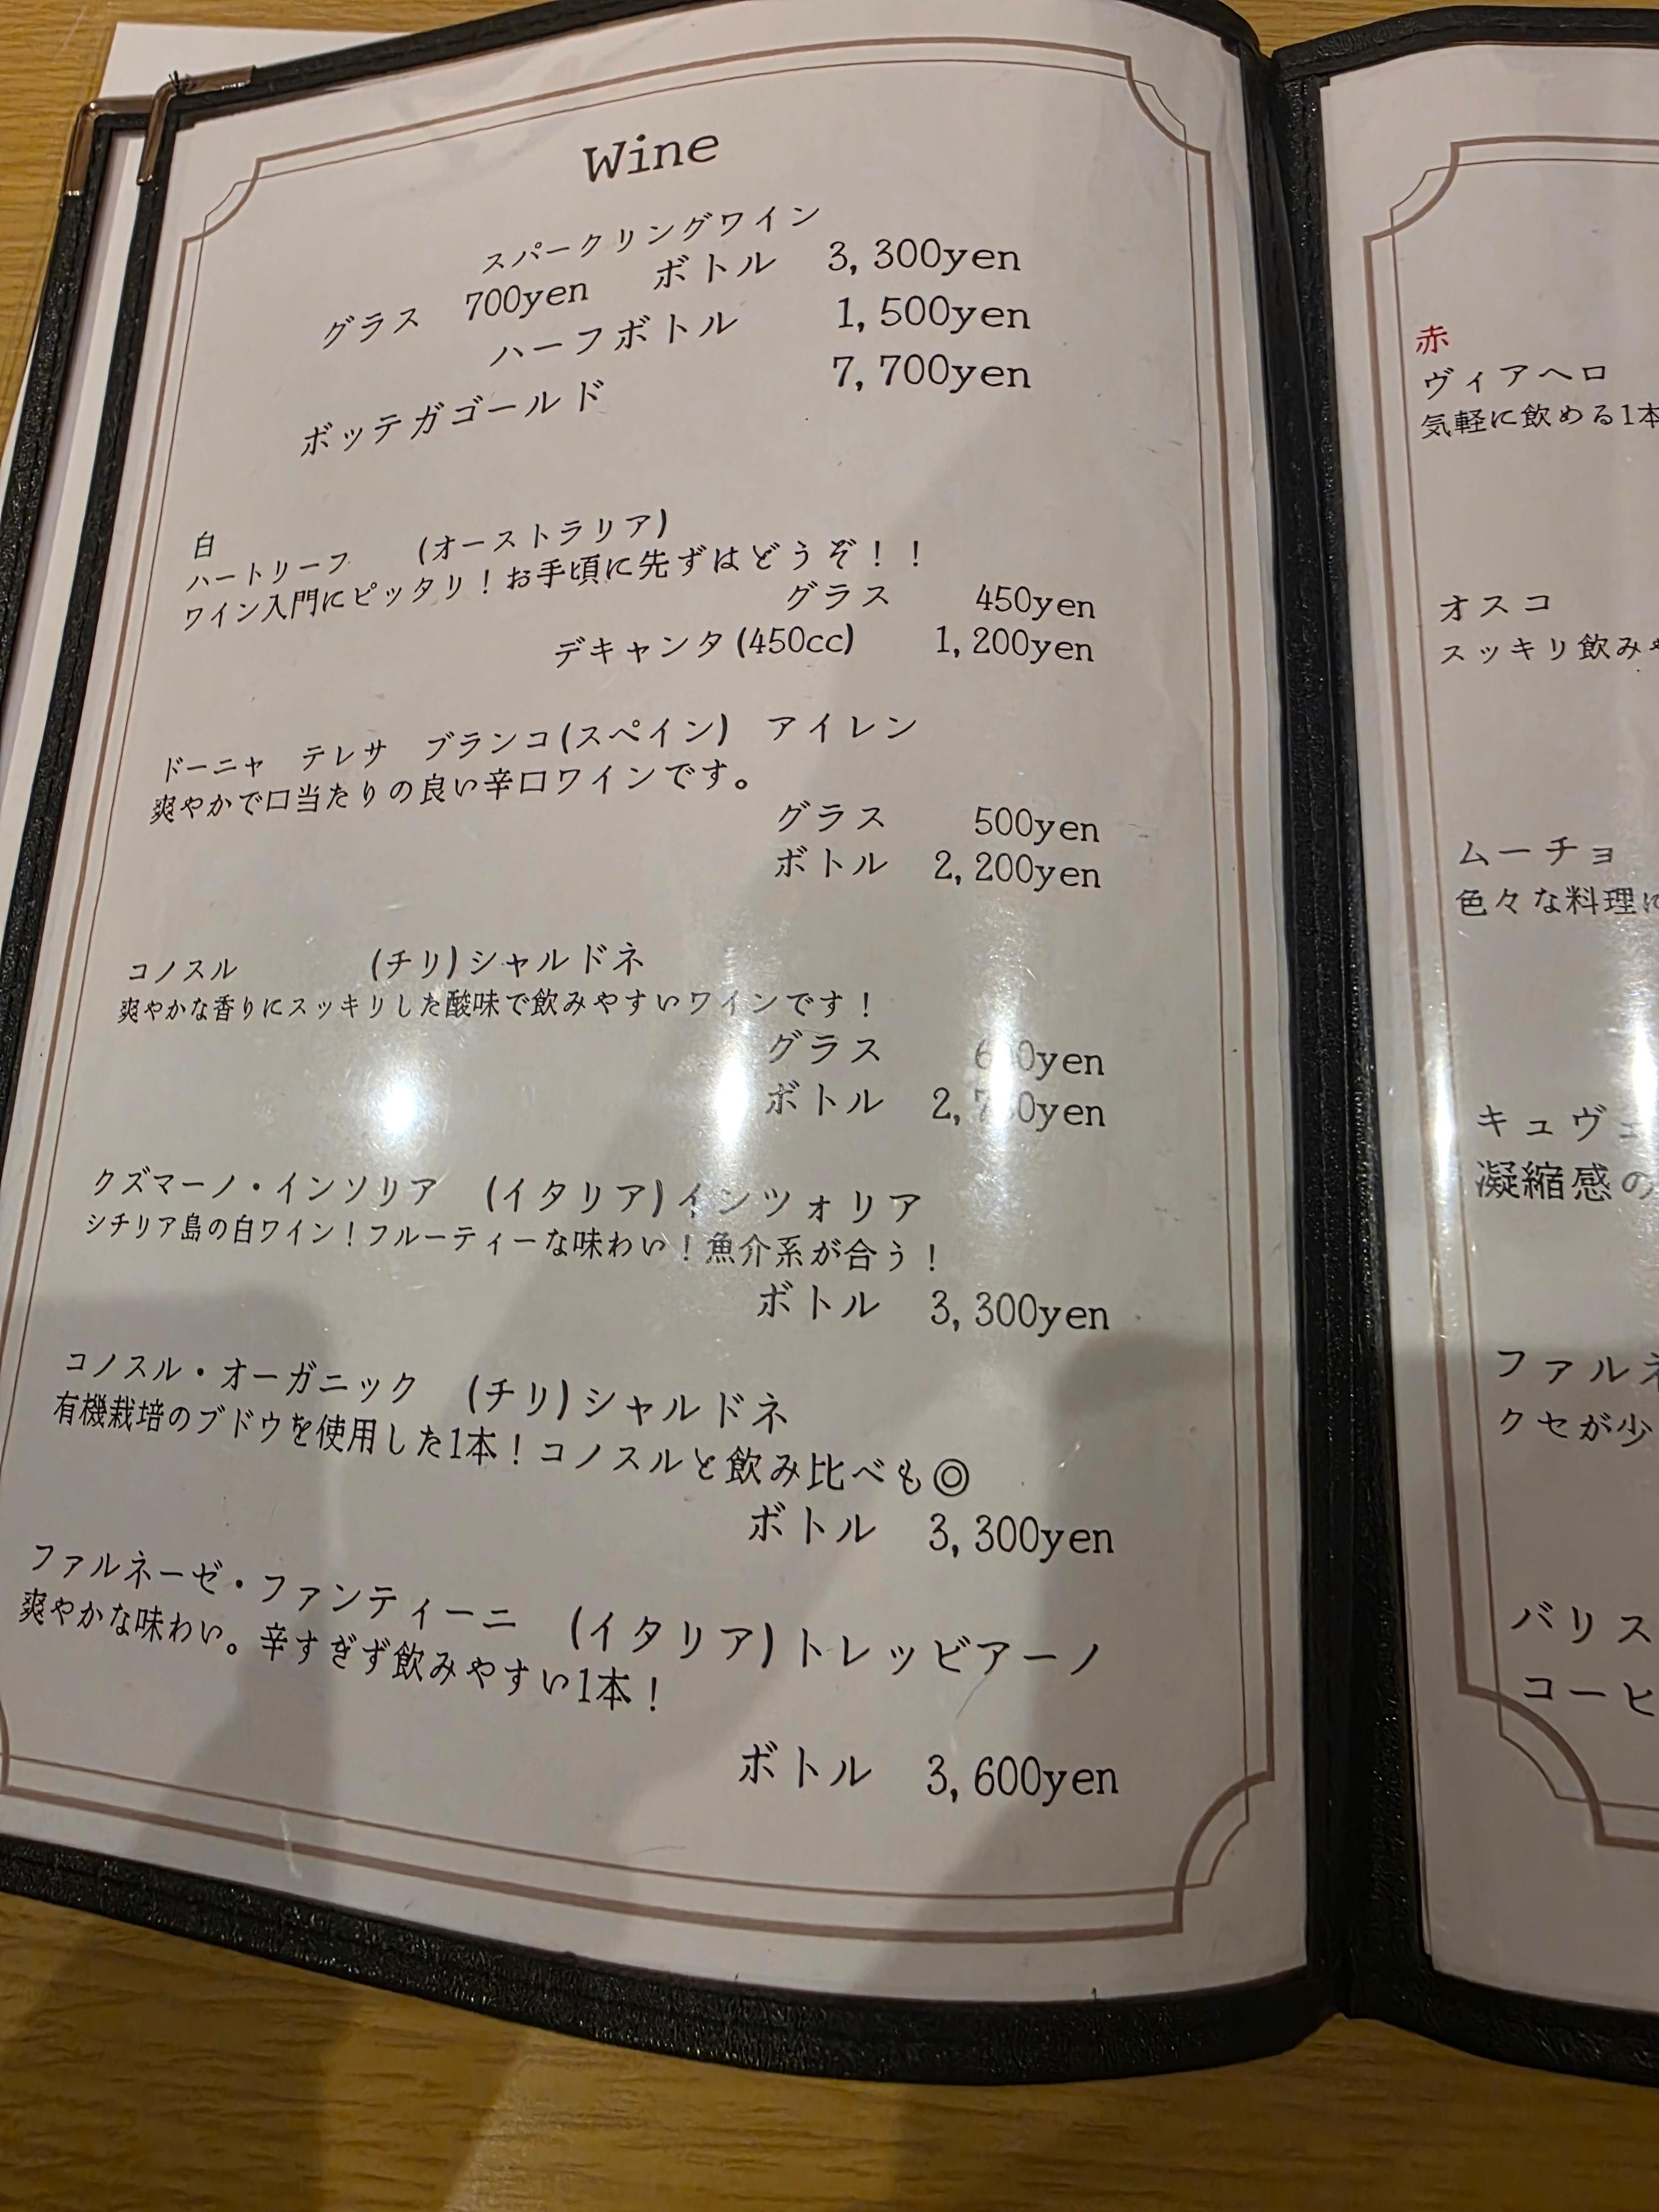 Wine
スパークリングワイン
グラス 700yen ボトル 3,300yen
ハーフボトル 1,500yen
ボッテガゴールド 7,700yen
白
ハートリーフ (オーストラリア)
ワイン入門にピッタリ!お手頃に先ずはどうぞ!!
グラス 450yen
デキャンタ(450cc) 1,200yen
ドーニャ テレサ ブランコ(スペイン) アイレン
爽やかで口当たりの良い辛口ワインです。
グラス 500yen
ボトル 2,200yen
コノスル (チリ)シャルドネ
爽やかな香りにスッキリした酸味で飲みやすいワインです!
グラス
ボトル
クズマーノ・インソリア (イタリア)インツォリア
シチリア島の白ワイン!フルーティーな味わい!魚介系が合う!
ボトル 3,300yen
コノスル・オーガニック (チリ)シャルドネ
有機栽培のブドウを使用した1本!コノスルと飲み比べも◎
ボトル 3,300yen
ファルネーゼ・ファンティーニ (イタリア)トレッビアーノ
爽やかな味わい。辛すぎず飲みやすい1本!
ボトル 3,600yen
赤
ヴィアヘロ
気軽に飲める1本
オスコ
スッキリ飲み
ムーチョ
色々な料理に
キュヴ
凝縮感の
ファルネ
クセが少
バリス
コーヒ